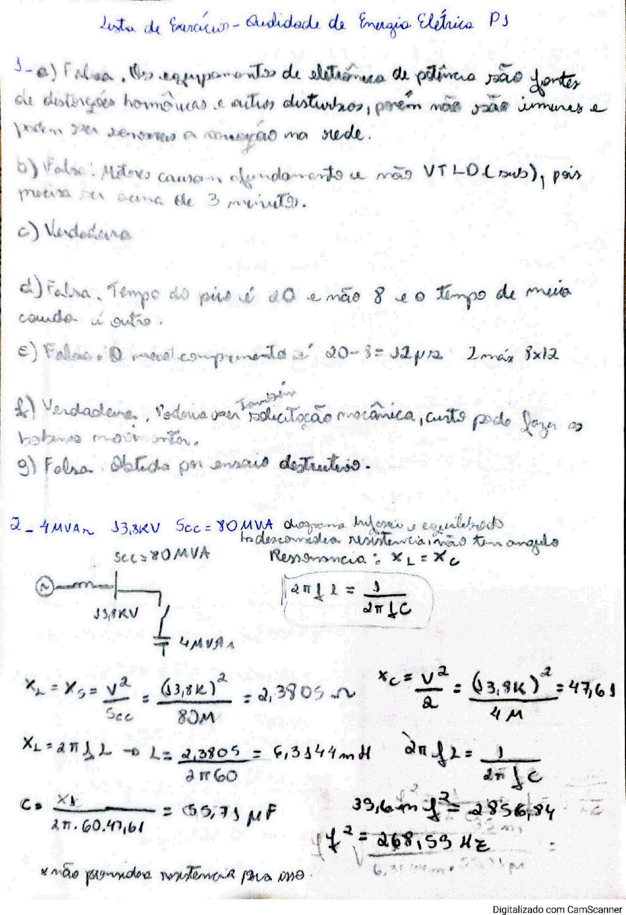 Lista de Exercícios - Qualidade de Energia Elétrica P1
1-a) Falsa. Os equipamentos de eletrônica de potência são fontes
de distorções harmônicas e outros distúrbios, porém não são imunes e
podem ser sensíveis a variação na rede.
b) Falsa. Motores causam afundamento e não VTLD (sub), pois
precisa ser acima de 3 minutos.
c) Verdadeira
d) Falsa. Tempo do pico é 20 e não 8 e o tempo de meia
cauda é outro.
e) Falsa. O comprimento é 20-8=12μs I máx 8x12
também
f) Verdadeira. Poderia ser solicitação mecânica, curto pode fazer as
bobinas
g) Falsa. Obtida por ensaio destrutivo.
2- 4MVAr 13,8KV Scc=80MVA diagrama trifásico e equilibrado
desconsidera resistencia, não tem angulo
Scc=80MVA Ressonancia: XL=XC
2πfL = 1/2πfC
13,8KV
4MVAr
XL=XS=V²/Scc=(13,8K)²/80M=2,3805 Ω XC=V²/2=(13,8K)²/4M=47,61
XL=2πfL → L=2,3805/2π60=6,3144mH 2πfL=1/2πfC
C=X1/2π.60.47,61=55,71μF 39,6m f²=2856,84
f²=268,55 HZ
* não resistencia para isso.
Digitalizado com CamScanner